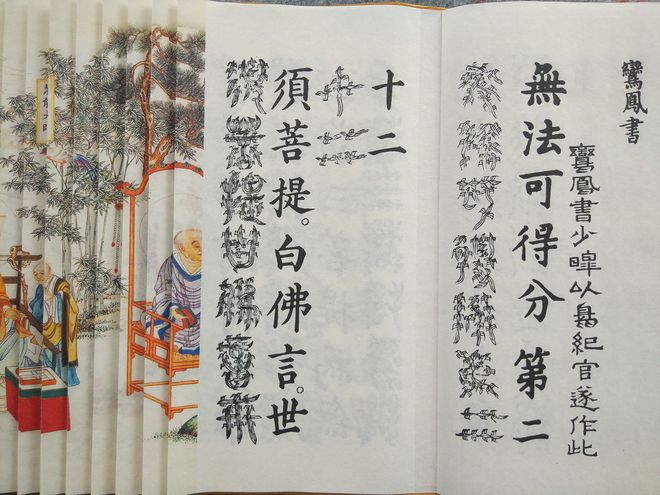 鸞鳳書
鸞鳳書少皞以鳥紀官遂作此
無法可得分第二
十二
須菩提。白佛言。世